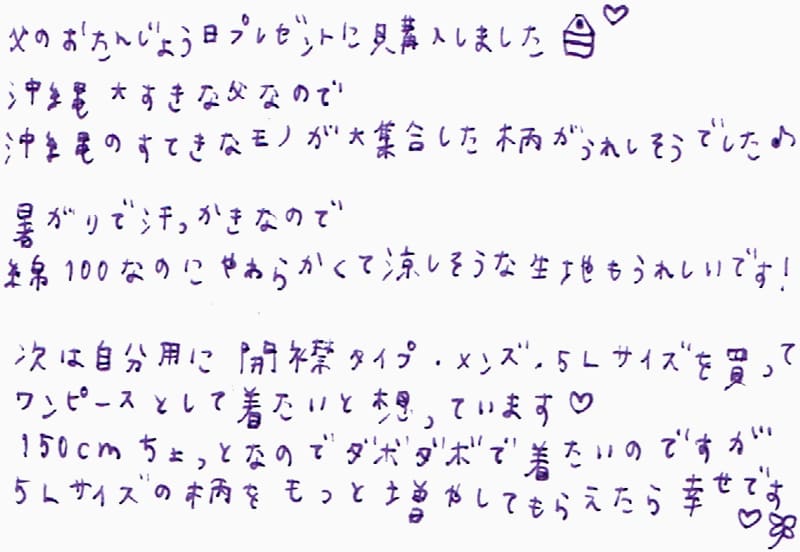 父のおたんじょう日プレゼントに見購入しました♡
沖縄大すきな父なので
沖縄のすてきなモノが大集合した柄がうれしそうでした♪
暑がりで汗っかきなので
綿100なのにやわらかくて涼しそうな生地もうれしいです!
次は自分用に 開襟タイプ・メンズ・5Lサイズを買って
ワンピースとして着たいと想っています♡
150cmちょっとなのでダボダボで着たいのですが
5Lサイズの柄をもっと増やしてもらえたら幸せです♡